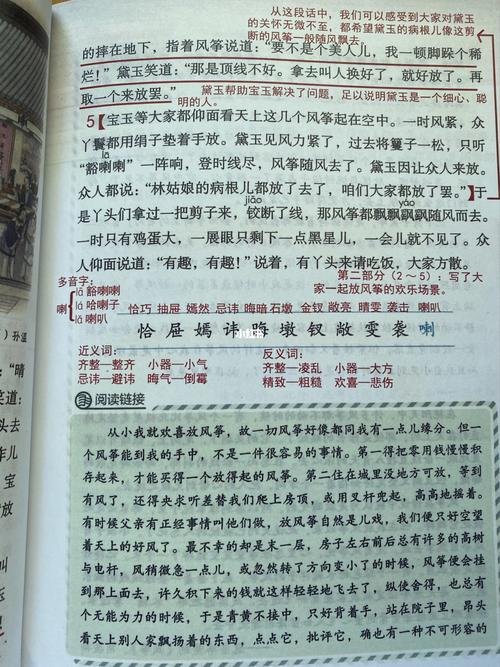 从这段话中，我们可以感受到大家对黛玉
的关怀无微不至，都希望黛玉的病根儿像这剪
断的风筝一般随风飘去。
的摔在地下，指着风筝说道：“要不是个美人儿，我一顿脚跺个稀
烂！”黛玉笑道：“那是顶线不好。拿去叫人换好了，就好放了。再
取一个来放罢。”
黛玉帮助宝玉解决了问题，足以说明黛玉是一个细心、聪
明的人。
5【宝玉等大家都仰面看天上这几个风筝起在空中。一时风紧，众
丫鬟都用绢子垫着手放。黛玉见风力紧了，过去将籰子一松，只听
lā
“豁喇喇”一阵响，登时线尽，风筝随风去了。黛玉因让众人来放。
众人都说：“林姑娘的病根儿都放了去了，咱们大家都放了罢。”】于
jiǎo
yáo
是丫头们拿过一把剪子来，铰断了线，那风筝都飘飘飖飖随风而去。
一时只有鸡蛋大，一展眼只剩下一点黑星儿，一会儿就不见了。众
人仰面说道：“有趣，有趣！”说着，有丫头来请吃饭，大家方散。
第二部分（2～5）：写了大
家一起放风筝的欢乐场景。
多音字：
喇
lā 豁喇喇
lá 哈喇子
lǎ 喇叭
恰巧 抽屉 嫣然 忌讳 晦暗 石墩 金钗 敞亮 晴雯 袭击 喇叭
恰 屉 嫣 讳 晦 墩 钗 敞 雯 袭 喇
近义词：
齐整—整齐 小器—小气
忌讳—避讳 晦气—倒霉
反义词：
齐整—凌乱 小器—大方
精致—粗糙 欢喜—悲伤
阅读链接
从小我就欢喜放风筝，故一切风筝好像都同我有一点儿缘分。但一
个风筝能到我的手中，不是一件很容易的事情。第一得把零用钱慢慢积
存起来，才能买得一个放得起的风筝。第二住在城里没地方可放，等到
有风了，还得央求听差替我们爬上房顶，或用叉杆兜起，高高地摇着。
有时候父亲有正经事情叫他们做，放风筝自然是儿戏，我们便只好空望
着天上的好风了。最不幸的却是末一层，房子左右前后总有许多的高树
与电杆，风稍微急一点儿，或忽然转了方向变小了的时候，风筝便会挂
到那上面去，许久积下来的钱就这样轻轻地飞去了，纵使舍得，也总有
个无能为力的时候，于是青黄不接中，只好背着手，站在院子里，昂头
看天上别人家飘扬着的东西，点点它，批评它，确也有一种不可形容的